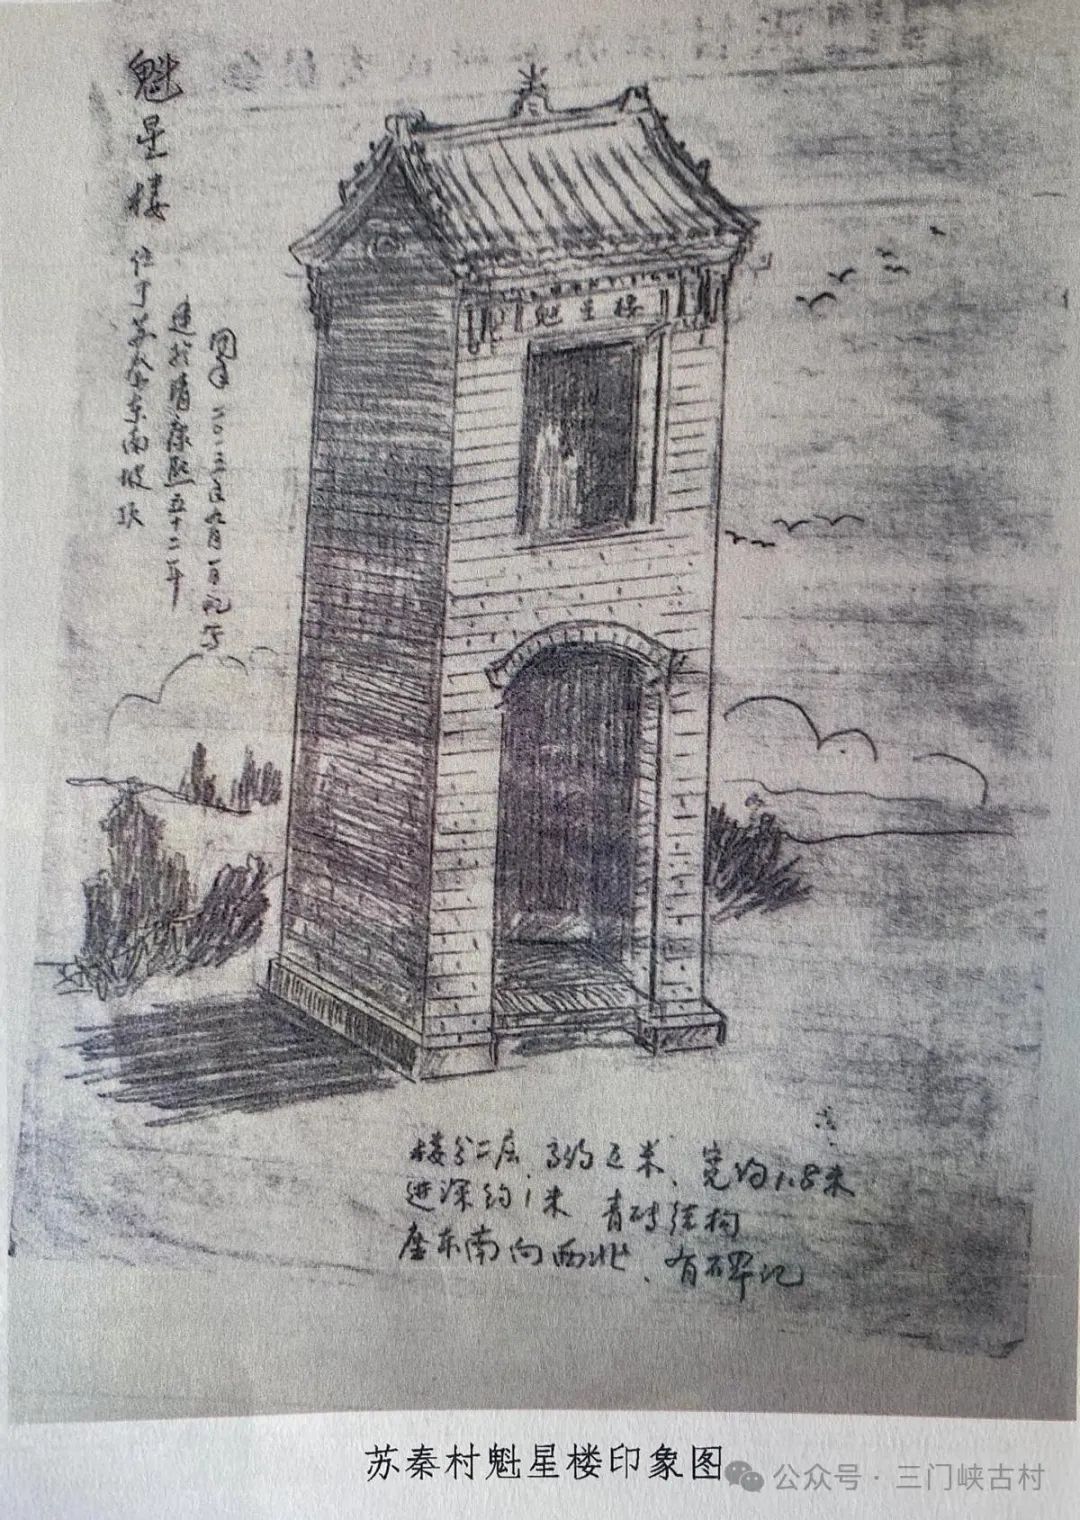 魁星楼 位于苏秦村东南坡
建于清康熙五十二年
二〇二二年九月一日
魁星楼
楼分二层、高约五米、宽约1.8米
进深约1米 青砖结构
座东南向西北、有碑记
苏秦村魁星楼印象图
公众号·三门峡古村